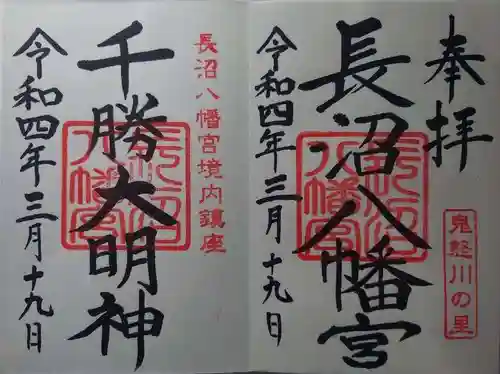 奉拝
鬼怒川の里
長沼八幡宮
長沼八幡宮
令和四年三月十九日
長沼八幡宮境内鎮座
千勝大明神
長沼八幡宮
令和四年三月十九日